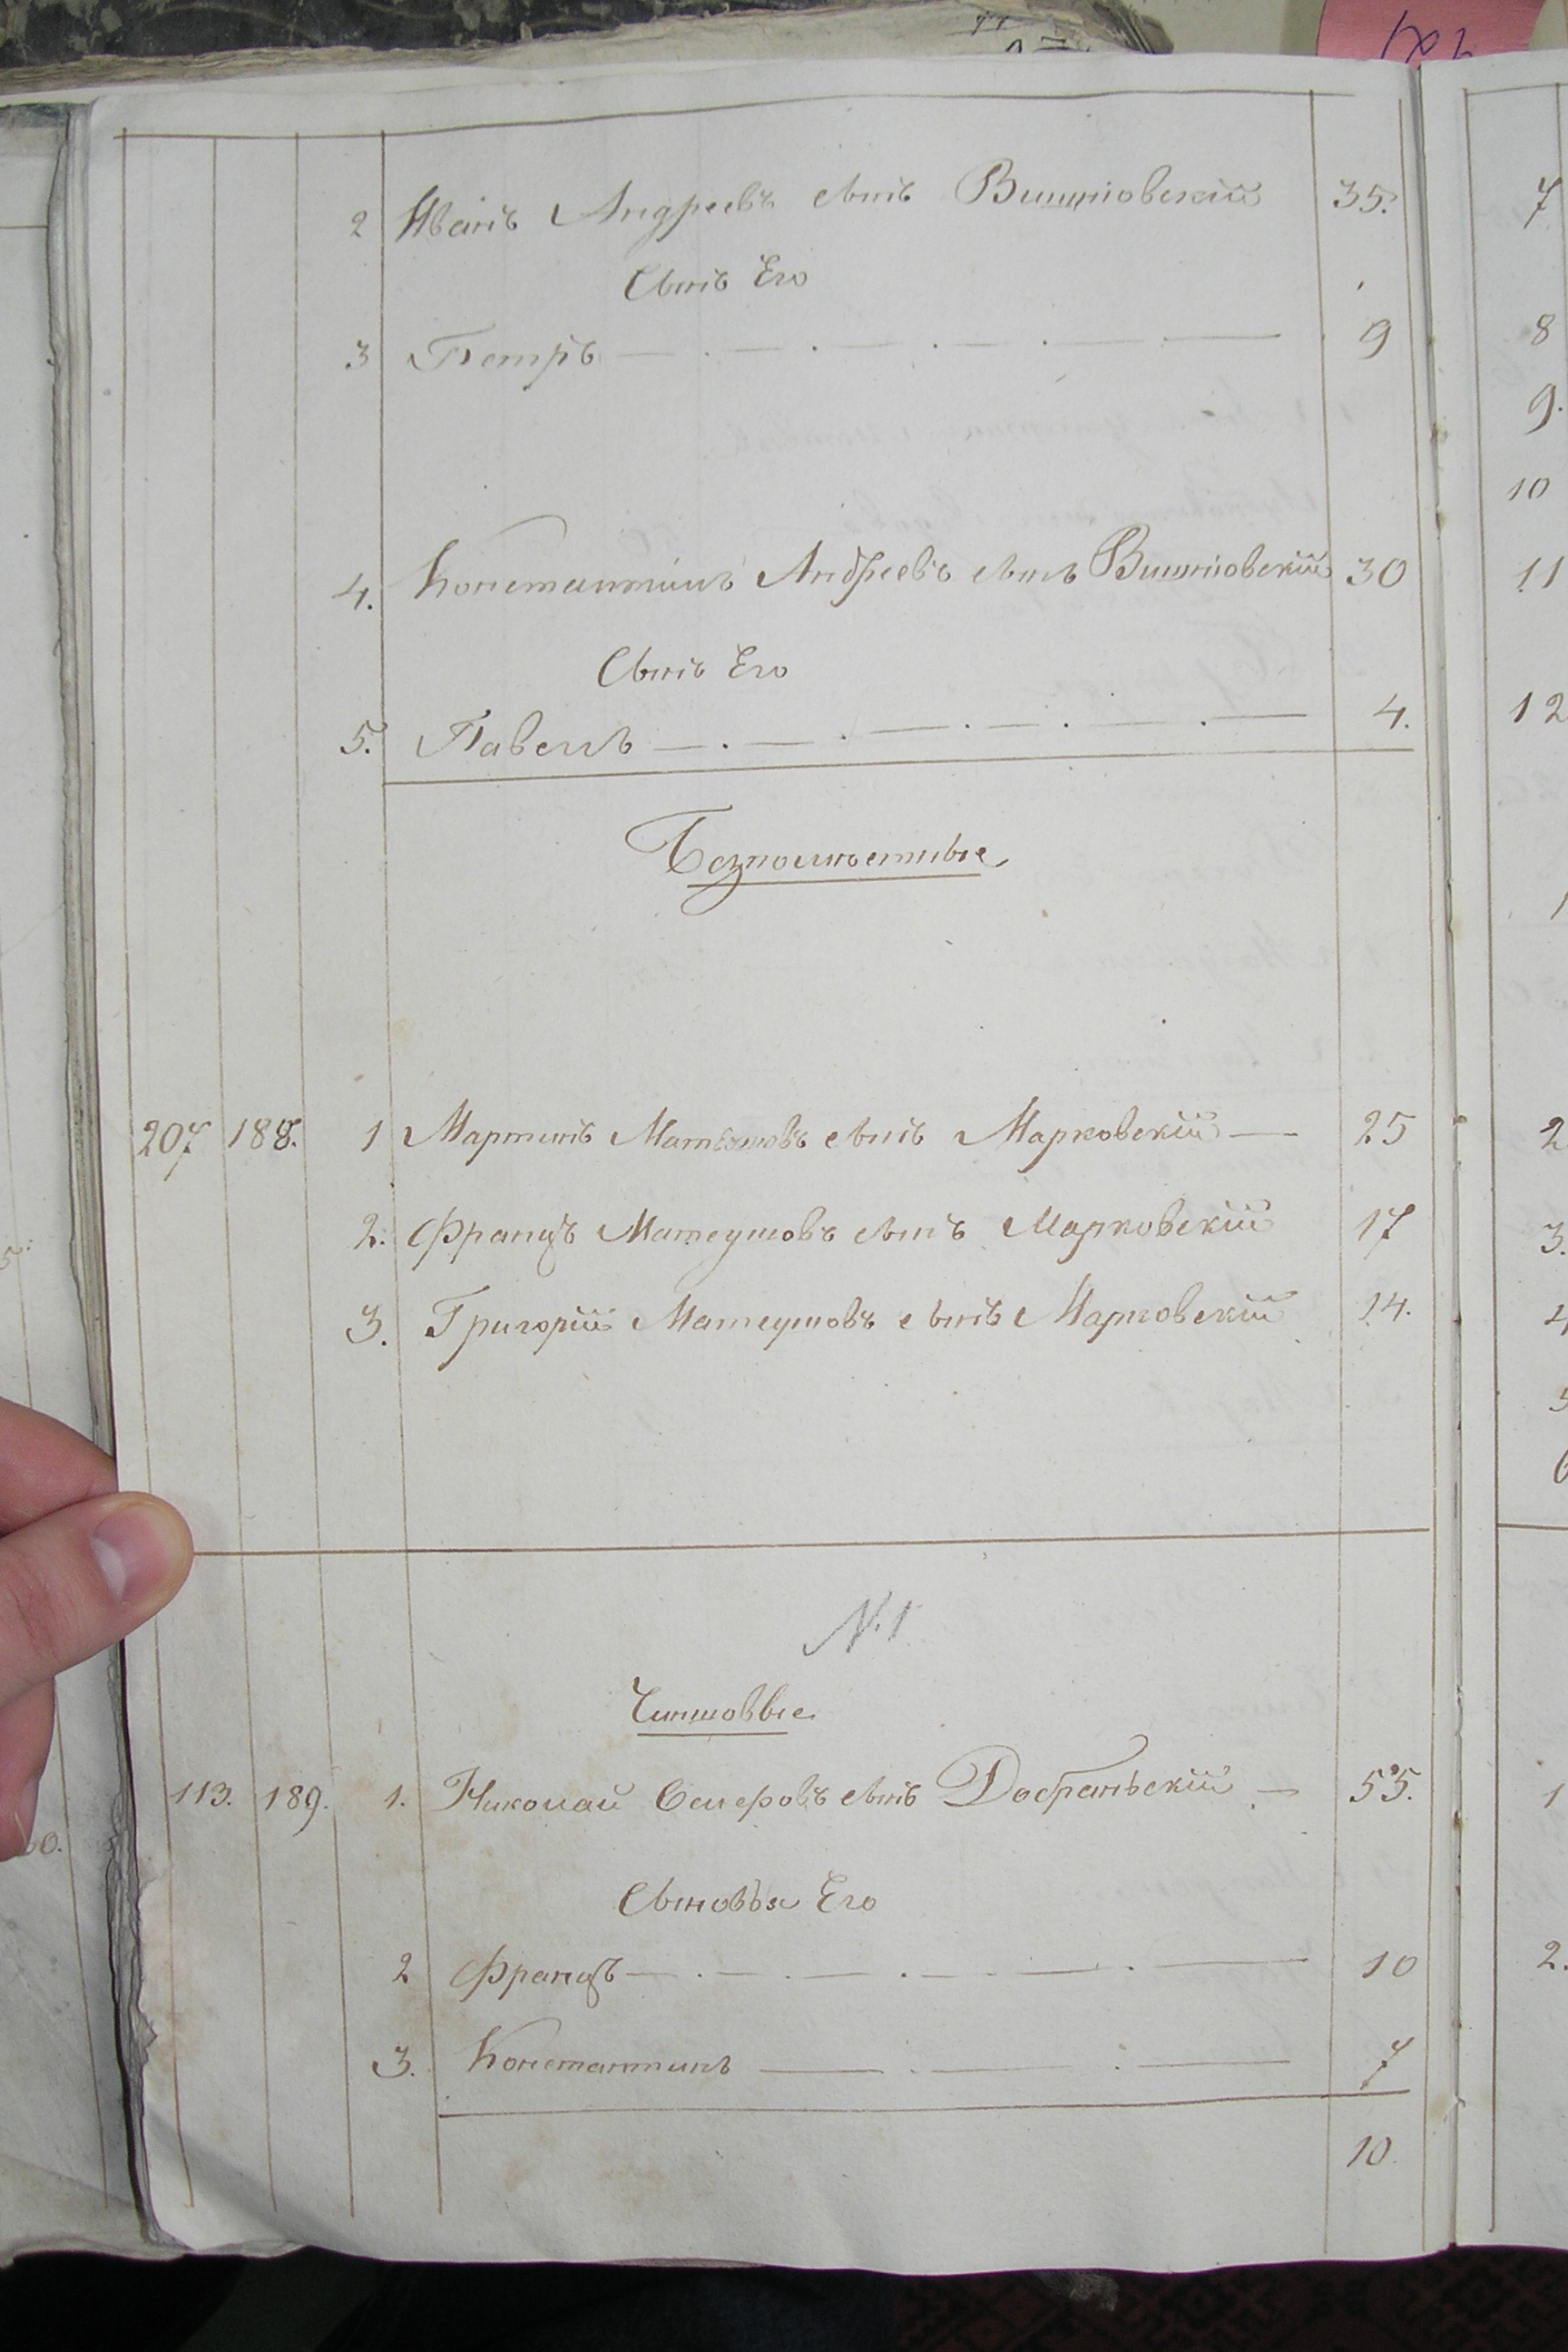 2 Иванъ Андреевъ сынъ Вишновскій 35.
Сынъ Его
3 Петръ 9
4. Константинъ Андреевъ сынъ Вишновскій 30
Сынъ Его
5. Павелъ 4.
Безпомѣстные
207 188. 1 Мартинъ Матеушовъ сынъ Марковскій 25
2. Францъ Матеушовъ сынъ Марковскій 17
3. Григорій Матеушовъ сынъ Марковскій 14.
N. 1
Чиншовые
113. 189. 1. Николай сынъ Добраньскій 55.
Сыновья Его
2 Францъ 10
3. Константинъ 7
10
7
8
9.
10
11
12
1
2
3.
4
5
6
1
2.